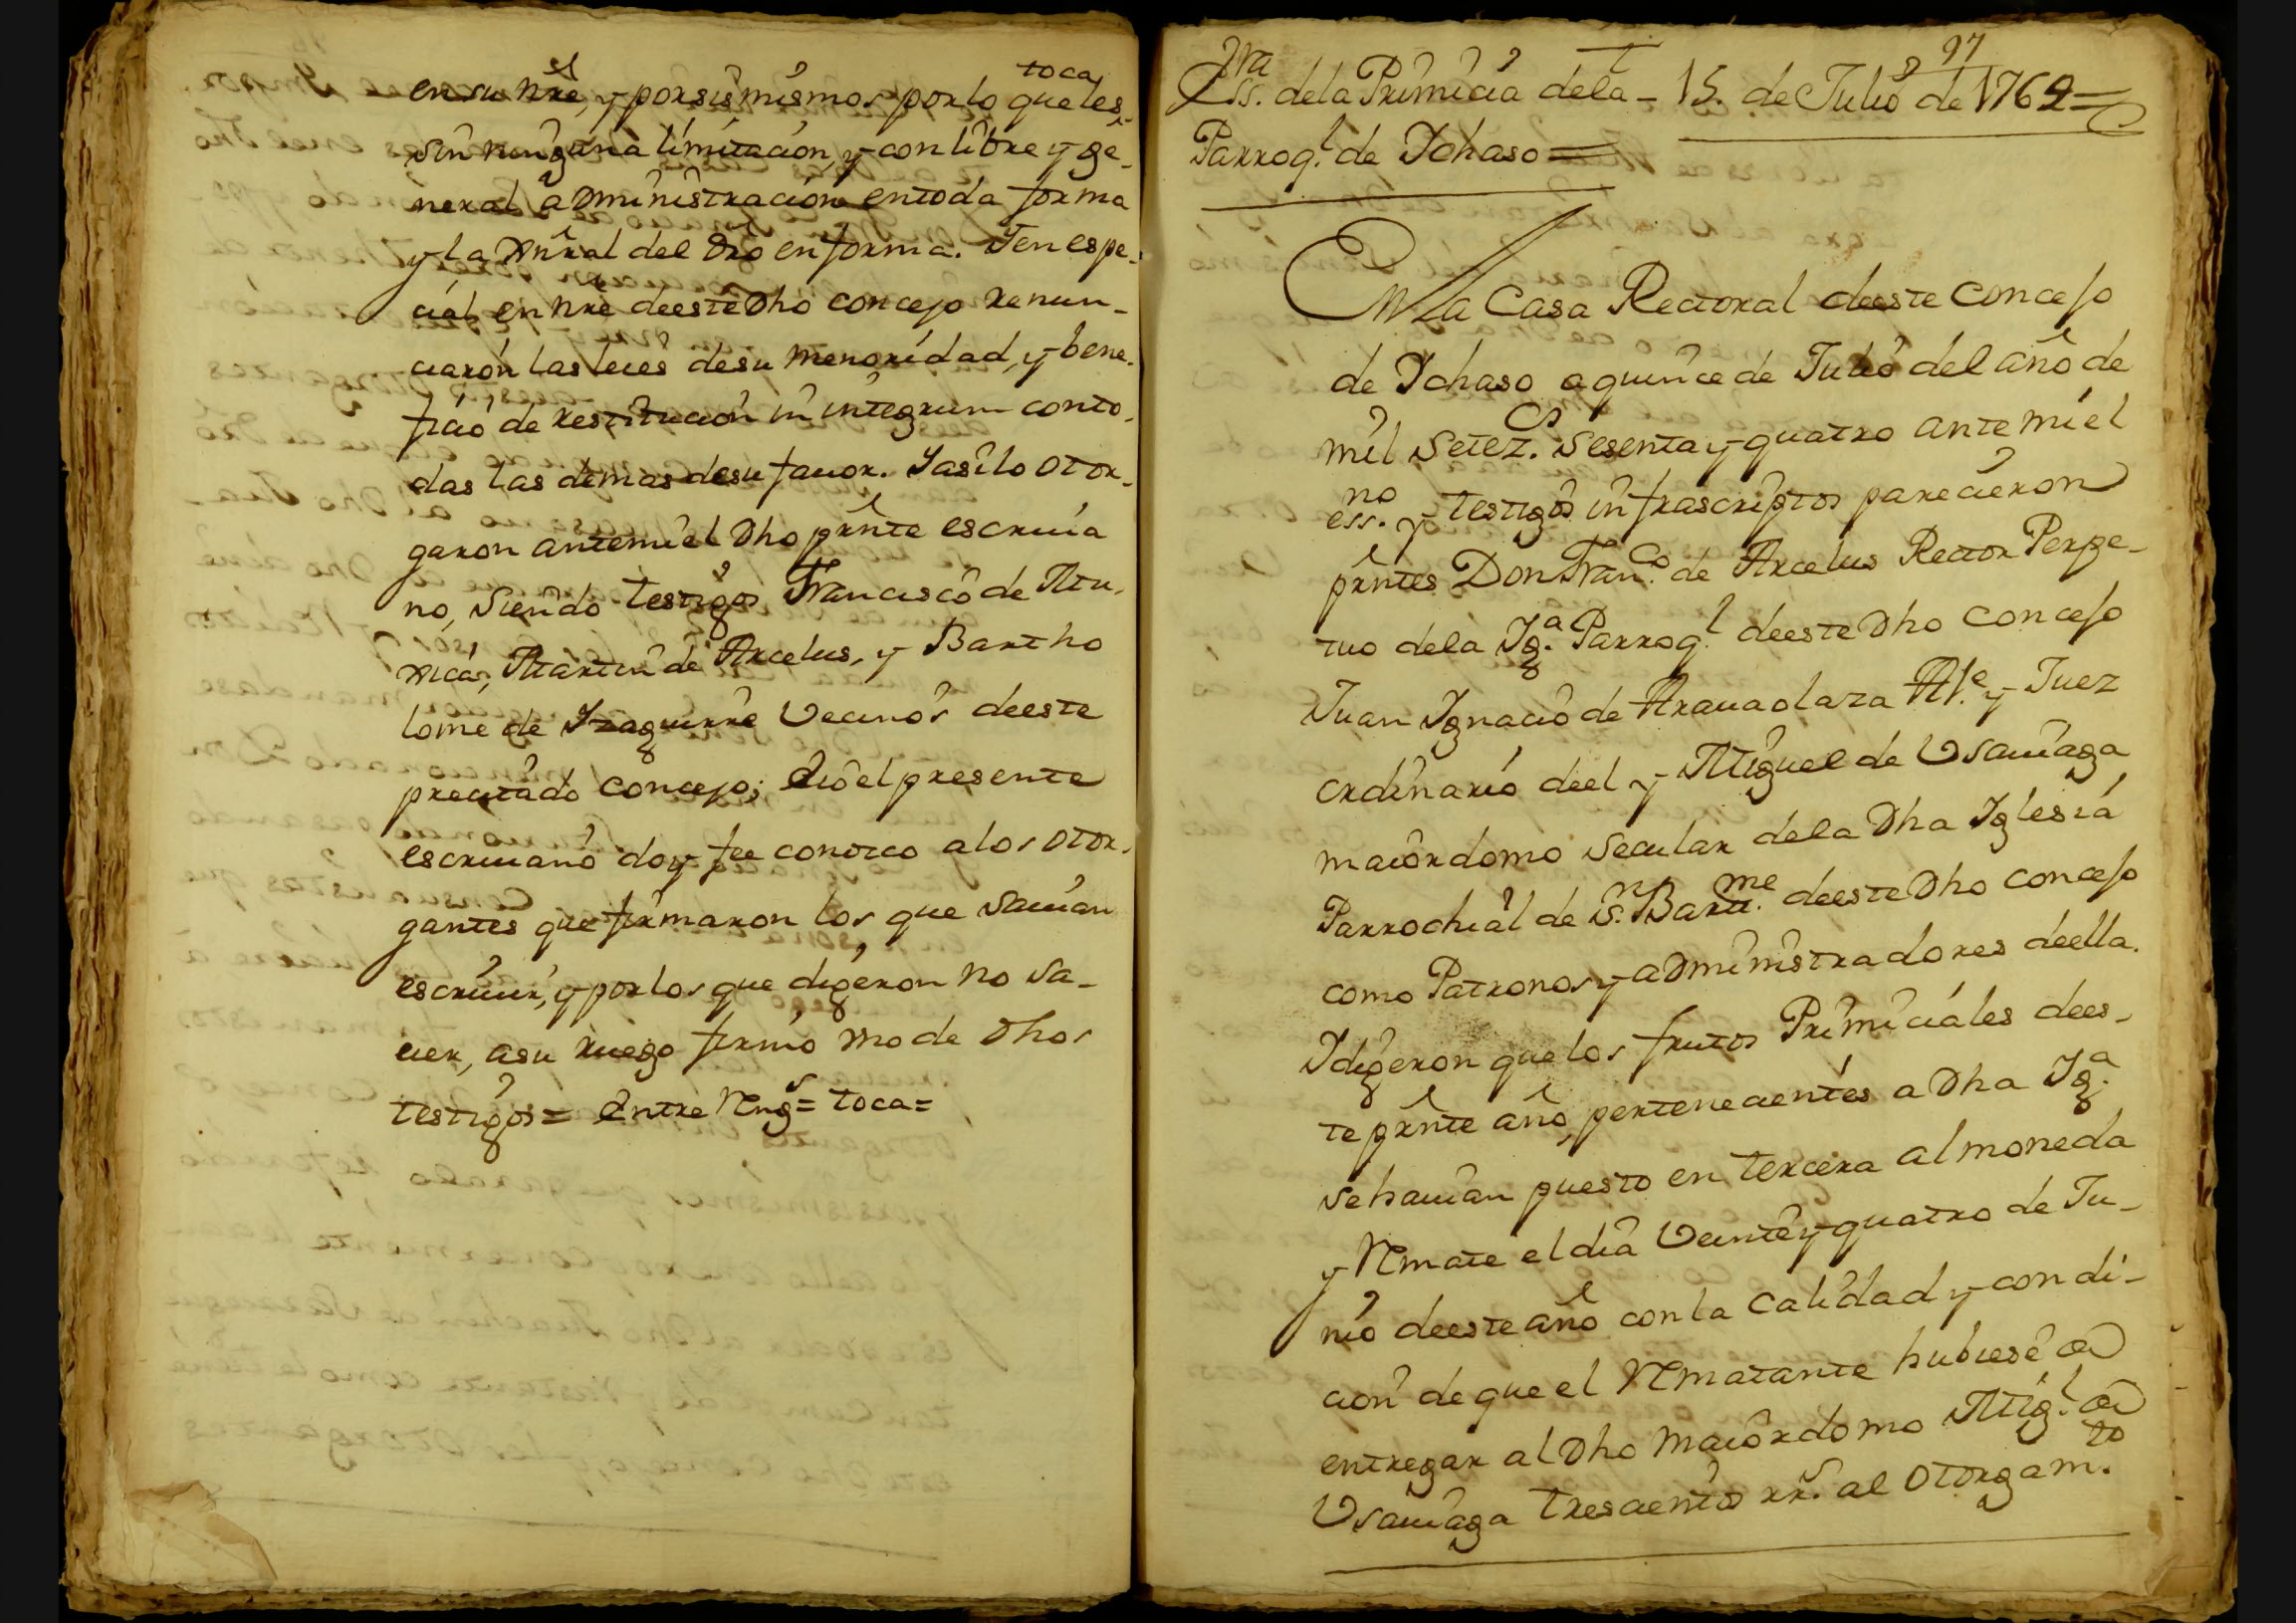 en su nr̃e, y por si mismos por lo que les toca
sin ninguna limitacion, y con libre y ge-
neral administracion en toda forma
y la gnral del dr̃o en forma. Y en espe-
cial en nr̃e de este dho concejo renun-
ciaron las leies de su menoridad, y bene-
ficio de restitucion in integrum con to-
das las demas de su fauor. Y asi lo otor-
garon ante mi el dho pr̃nte escriua
no, siendo testigos Francisco de Mu-
xica, Martin de Arcelus, y Bartho
lome de Yzaguirre vecinos de este
precitado concejo; è Yo el presente
escriuano doy fee conozco a los otor-
gantes que firmaron los que sauian
escriuir, y por los que digeron no sa-
uer, a su ruego firmó vno de dhos
testigos = Entre Rengs = toca =
97
Ess.ra de la Primicia de la - 15. de Julio de 1764 =
Parrog.l de Ychaso =
En la Casa Rectoral de este concejo
de Ychaso a quince de Julio del año de
mil setez.os sesenta y quatro ante mi el
ess.no y testigos infrascriptos parecieron
pr̃ntes Don Fran.co de Arcelus Rector Perpe-
tuo de la Yg.a Parrog.l de este dho concejo
Juan Ygnacio de Arauaolaza Al.e y Juez
ordinario de el y Miguel de Vsauiaga
maiordomo secular de la dha Yglesia
Parrochial de S.n Bartt.me de este dho concejo
como Patronos y administradores de ella.
Y digeron que los frutos Primiciales de es-
te pr̃nte año, pertenecientes a dha Yg.a
se hauian puesto en tercera almoneda
y Remate el dia veinte y quatro de Ju-
nio de este año con la calidad y condi-
cion de que el Rematante hubiese de
entregar al dho maiordomo Mig.l de
Vsauiaga trescientos rr.s al otorgam.to